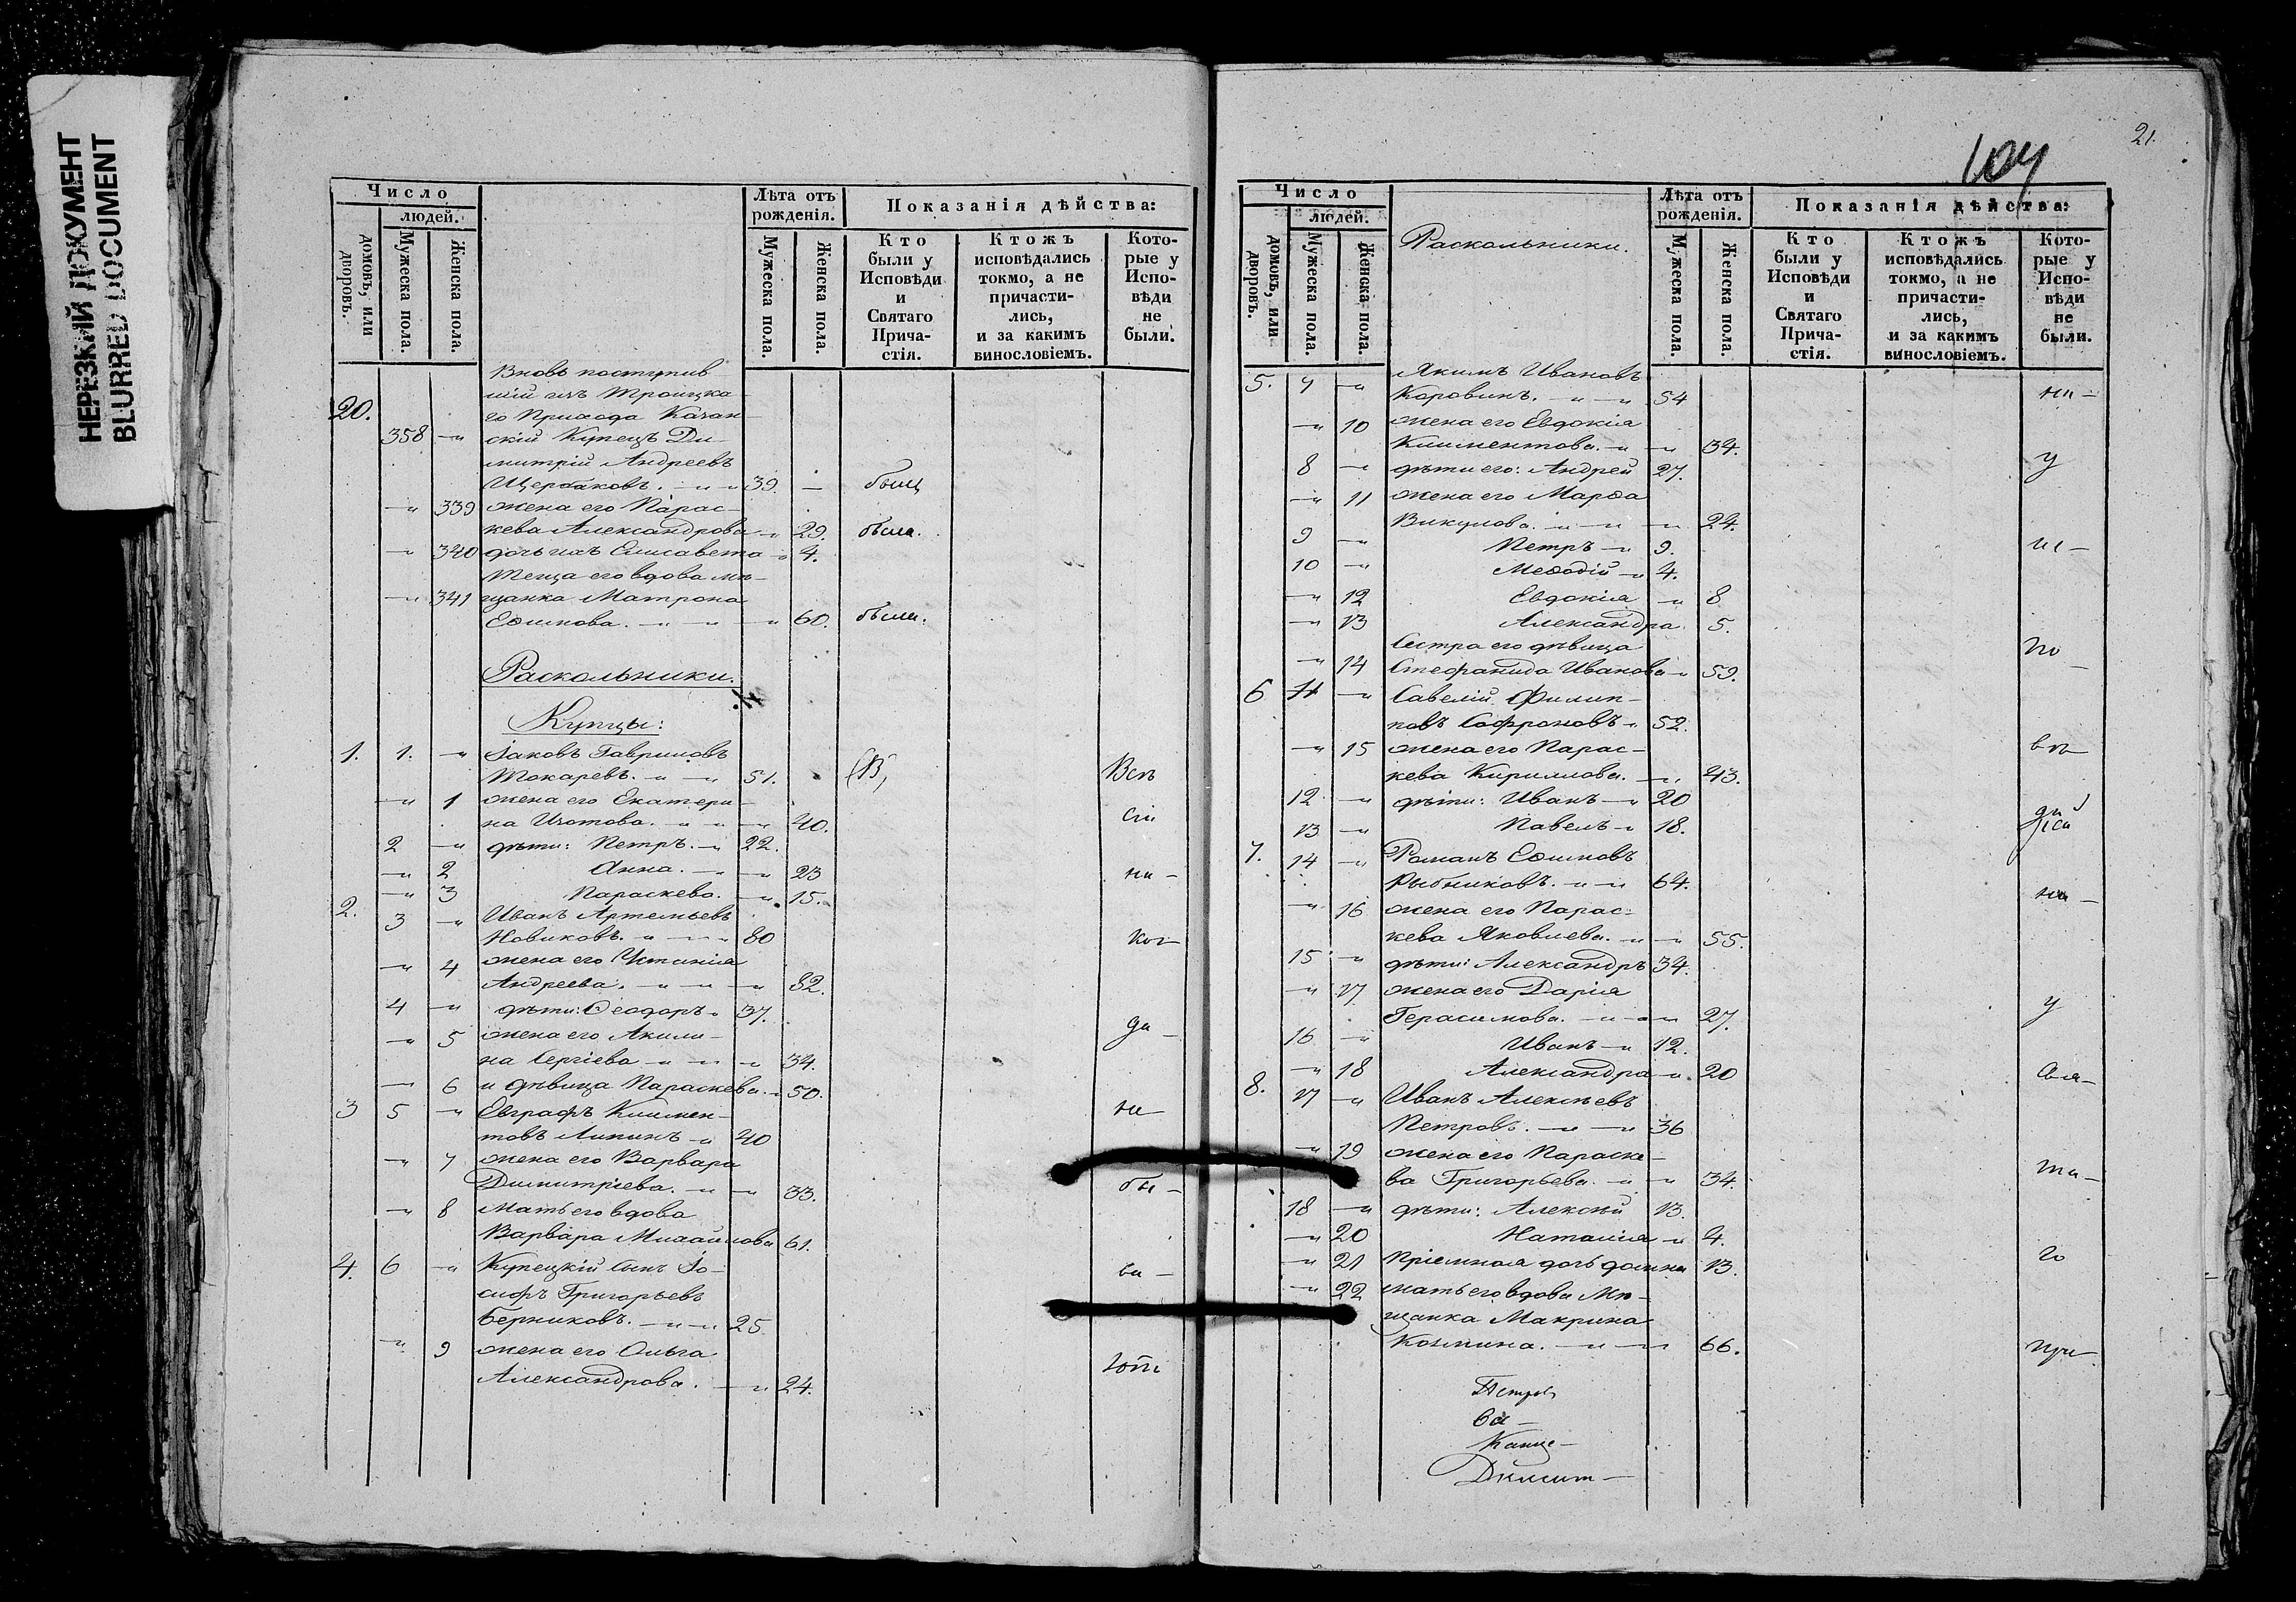 НЕРЕЗКИЙ ДОКУМЕНТ
BLURRED DOCUMENT
Число
людей.
домовъ, или дворовъ.
Мужеска пола.
Женска пола.
Лѣта отъ рожденія.
Мужеска пола.
Женска пола.
Показанія дѣйства:
Кто были у Исповѣди и Святаго Прича-стія.
Ктожъ исповѣдались токмо, а не причасти-лись, и за какимъ винословіемъ.
Кото-рые у Испо-вѣди не были.
Вновь поступив
шій изъ Троицка-
20. го Прихода Казан-
358 -„ скій Купецъ Ди-
митрій Андреевъ
Щербаковъ. -„ -„ 39. — былъ
-„ 339 жена его Парас-
кева Александрова -„ 29. была.
-„ 340 дочь ихъ Елисавета -„ 4.
Теща его вдова мѣ-
-„ 341 щанка Матрона
Ефимова. -„ -„ -„ 60. была.
Раскольники.
Купцы:
1. 1. -„ Іаковъ Гавриловъ
Токаревъ. -„ -„ 51. (В) Всѣ
-„ 1 жена его Екатери-
на Изотова. -„ -„ -„ 40. сіи
2 -„ дѣти: Петръ. -„ 22.
-„ 2 Анна. -„ -„ 23 ни-
-„ 3 Параскева. -„ 15.
2. 3 -„ Иванъ Артемьевъ
Новиковъ. -„ -„ 80 ког-
-„ 4 жена его Устинія
Андреева. -„ -„ -„ 82.
4 -„ дѣти: Ѳеодоръ -„ 37.
-„ 5 жена его Акили- да-
на Сергіева -„ -„ -„ 34.
-„ 6 и дѣвица Параскева. -„ 50.
3 5 -„ Евграфъ Климен- не-
товъ Липинъ -„ 40
-„ 7 жена его Варвара
Димитріева. -„ -„ 33. бы-
-„ 8 мать его вдова
Варвара Михайлова 61.
4. 6 -„ Купецкій Сынъ Іо- ва-
сифъ Григорьевъ
Берниковъ. -„ -„ 25
-„ 9 жена его Ольга ютъ
Александрова. -„ 24.
21.
104
Число
людей.
домовъ, или дворовъ.
Мужеска пола.
Женска пола.
Раскольники.
Лѣта отъ рожденія.
Мужеска пола.
Женска пола.
Показанія дѣйства:
Кто были у Исповѣди и Святаго Прича-стія.
Ктожъ исповѣдались токмо, а не причасти-лись, и за какимъ винословіемъ.
Кото-рые у Испо-вѣди не были.
5. 7 -„ Якимъ Ивановъ
Коровинъ. -„ -„ 54 ни-
-„ 10 жена его Евдокія
Климентова. -„ -„ 34.
8 -„ дѣти его: Андрей 27. у
-„ 11 жена его Марѳа
Викулова. -„ -„ -„ 24.
9 -„ Петръ -„ 9. ис-
10 -„ Меѳодій -„ 4.
-„ 12 Евдокія -„ 8
-„ 13 Александра 5.
Сестра его дѣвица по-
-„ 14 Стефанида Иванова -„ 59.
6 11 -„ Савелій Филип-
повъ Софроновъ -„ 52.
-„ 15 жена его Парас- вѣ-
кева Кириллова. -„ 43.
12 -„ дѣти: Иванъ -„ 20
13 -„ Павелъ -„ 18. ди
7. 14 -„ Романъ Ефимовъ
Рыбниковъ. -„ -„ 64. ни-
-„ 16 жена его Парас-
кева Яковлева. -„ -„ 55.
15 -„ дѣти: Александръ 34.
-„ 17 жена его Дарія у
Герасимова. -„ -„ 27.
16 -„ Иванъ -„ 12.
-„ 18 Александра -„ 20 Свя-
8. 17 -„ Иванъ Алексѣевъ
Петровъ. -„ -„ 36
-„ 19 жена его Параске- та-
ва Григорьева. -„ -„ 34.
18 -„ дѣти: Алексѣй 13.
-„ 20 Наталія -„ 4.
-„ 21 Пріемная дочь Домна 13. го
-„ 22 мать его вдова Мѣ-
щанка Макрина
Козмина. -„ -„ 66. при-
Петров
ва-
Димит-